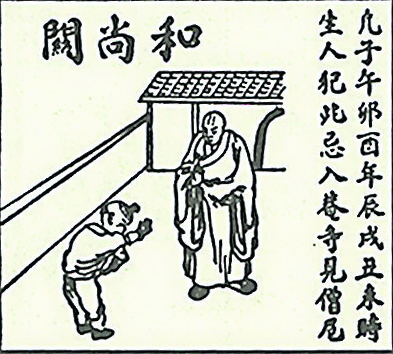 和尚關
凡子午卯酉年辰戌丑未時
生人犯此忌入菴寺見僧尼